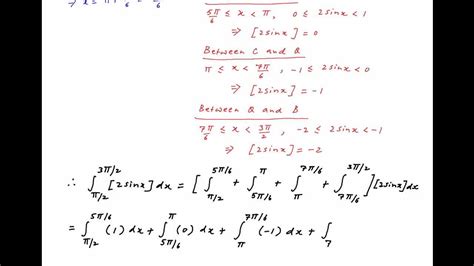 5π/6 ≤ x < π, 0 ≤ 2sinx < 1
⇒ [2sinx] = 0
Between C and Q
π ≤ x < 7π/6, -1 ≤ 2sinx < 0
⇒ [2sinx] = -1
Between Q and B
7π/6 ≤ x < 3π/2, -2 ≤ 2sinx < -1
⇒ [2sinx] = -2
∴ ∫_{π/2}^{3π/2} [2sinx] dx = [ ∫_{π/2}^{5π/6} + ∫_{5π/6}^{π} + ∫_{π}^{7π/6} + ∫_{7π/6}^{3π/2} ] [2sinx] dx
= ∫_{π/2}^{5π/6} (1) dx + ∫_{5π/6}^{π} (0) dx + ∫_{π}^{7π/6} (-1) dx + ∫_{7